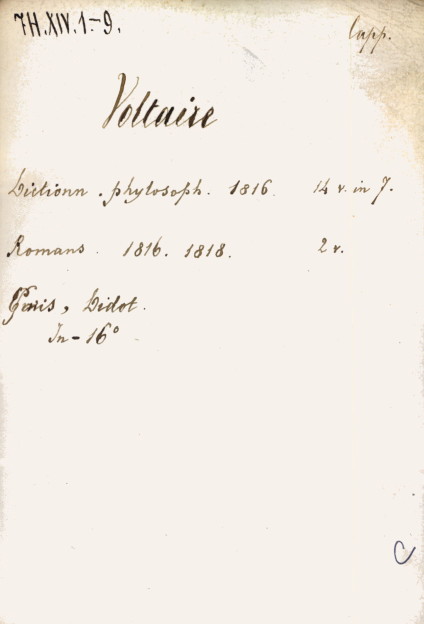 7H.XIV.1-9.
Capp.
Voltaire
Dictionn. phylosoph. 1816. 14 v. in 7.
Romans. 1816. 1818. 2 v.
Paris, Didot.
In-16°
C